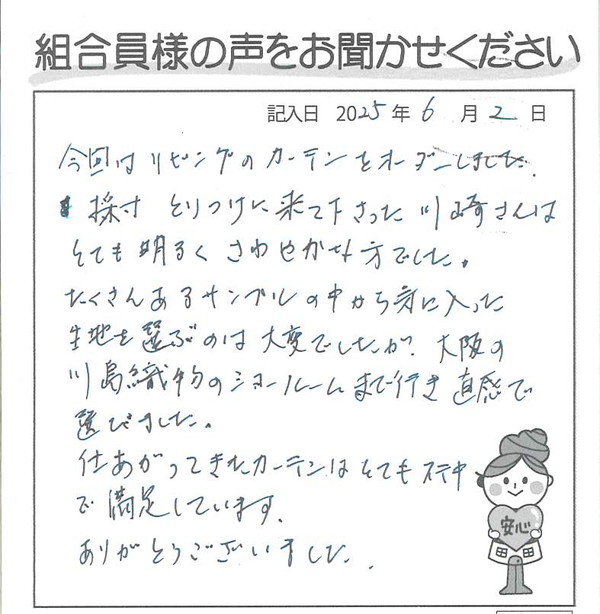 組合員様の声をお聞かせください
記入日 2025年6月2日
今回はリビングのカーテンをオーダーしました。
採寸 とりつけに来て下さった川崎さんは
とても明るくさわやかな方でした。
たくさんあるサンプルの中から気に入った
生地を選ぶのは大変でしたが、大阪の
川島織物のショールームまで行き直感で
選びました。
仕あがってきたカーテンはとてもステキ
で満足しています。
ありがとうございました。
安心